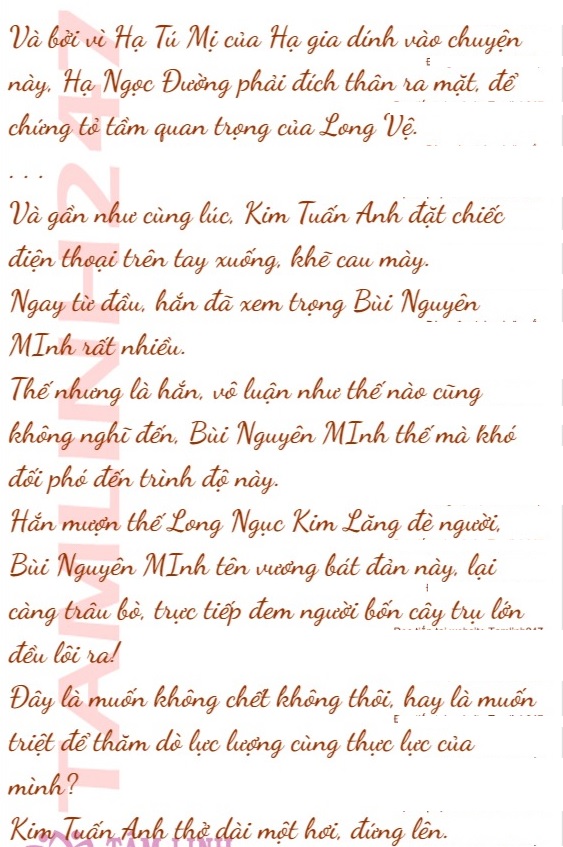 Và bởi vì Hạ Tú Mị của Hạ gia dính vào chuyện
này, Hạ Ngọc Đường phải đích thân ra mặt, để
chứng tỏ tầm quan trọng của Long Vệ.
. . .
Và gần như cùng lúc, Kim Tuấn Anh đặt chiếc
điện thoại trên tay xuống, khẽ cau mày.
Ngay từ đầu, hắn đã xem trọng Bùi Nguyên
MInh rất nhiều.
Thế nhưng là hắn, vô luận như thế nào cũng
không nghĩ đến, Bùi Nguyên MInh thế mà khó
đối phó đến trình độ này.
Hắn mượn thế Long Ngục Kim Lăng đè người,
Bùi Nguyên MInh tên vương bát đản này, lại
càng trâu bò, trực tiếp đem người bốn cây trụ lớn
đều lôi ra!
Đây là muốn không chết không thôi, hay là muốn
triệt để thăm dò lực lượng cùng thực lực của
mình?
Kim Tuấn Anh thở dài một hơi, đứng lên.
TAMLINH247
TÂM LINH